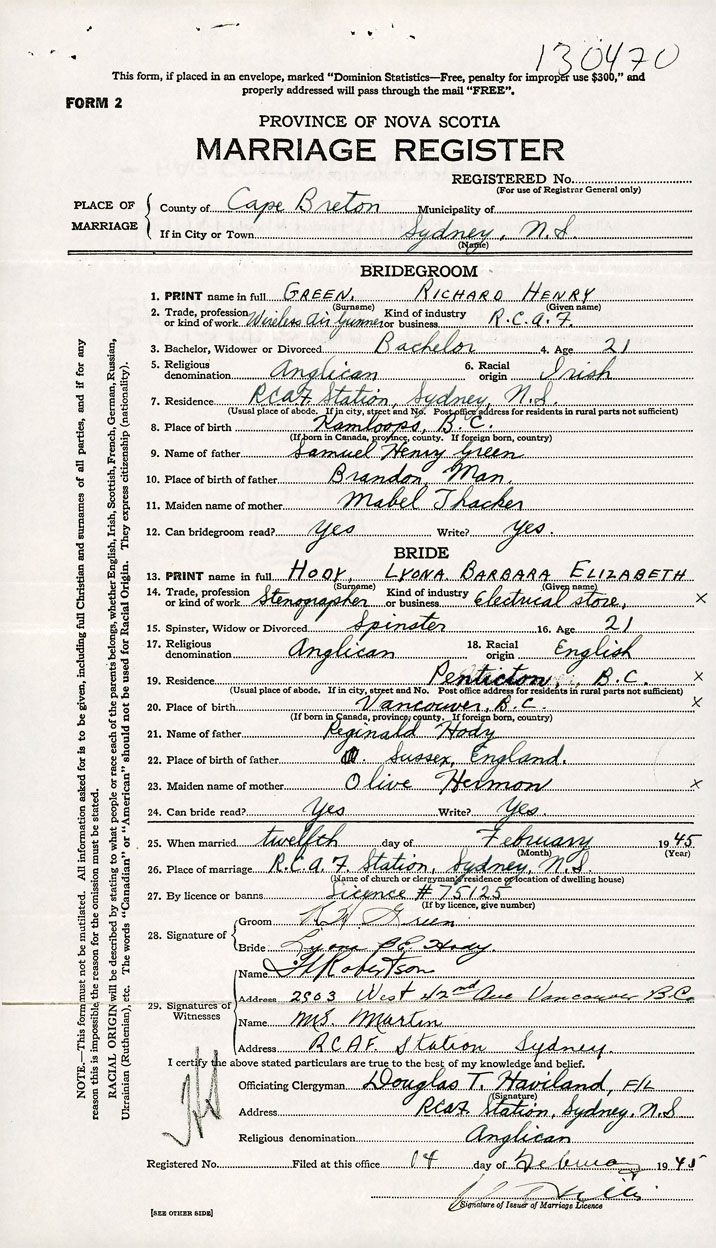 130470
This form, if placed in an envelope, marked "Dominion Statistics—Free, penalty for improper use $300," and
properly addressed will pass through the mail "FREE".
FORM 2
PROVINCE OF NOVA SCOTIA
MARRIAGE REGISTER
REGISTERED No.
(For use of Registrar General only)
PLACE OF MARRIAGE
County of Cape Breton Municipality of
If in City or Town Sydney, N.S.
(Name)
BRIDEGROOM
1. PRINT name in full GREEN, RICHARD HENRY
(Surname) (Given name)
2. Trade, profession or kind of work Wireless Air Gunner Kind of industry or business R.C.A.F.
3. Bachelor, Widower or Divorced Bachelor 4. Age 21
5. Religious denomination Anglican 6. Racial origin Irish
7. Residence RCAF Station, Sydney, N.S.
(Usual place of abode. If in city, street and No. Post office address for residents in rural parts not sufficient)
8. Place of birth Kamloops, B.C.
(If born in Canada, province, county. If foreign born, country)
9. Name of father Samuel Henry Green
10. Place of birth of father Brandon, Man.
11. Maiden name of mother Mabel Thacker
12. Can bridegroom read? Yes Write? Yes.
BRIDE
13. PRINT name in full HODY, LYONA BARBARA ELIZABETH
(Surname) (Given name)
14. Trade, profession or kind of work Stenographer Kind of industry or business Electrical store, X
15. Spinster, Widow or Divorced Spinster 16. Age 21
17. Religious denomination Anglican 18. Racial origin English
19. Residence Penticton, B.C. X
(Usual place of abode. If in city, street and No. Post office address for residents in rural parts not sufficient)
20. Place of birth Vancouver, B.C. X
(If born in Canada, province, county. If foreign born, country)
21. Name of father Reginald Hody
22. Place of birth of father Sussex, England.
23. Maiden name of mother Olive Hermon X
24. Can bride read? Yes Write? Yes
25. When married twelfth day of February 1945
(Month) (Year)
26. Place of marriage R.C.A.F Station, Sydney, N.S.
(Name of church or clergyman's residence or location of dwelling house)
27. By licence or banns Licence # 75125
(If by licence, give number)
28. Signature of
Groom R H Green
Bride Lyona B.E. Hody.
29. Signatures of Witnesses
Name Robertson
Address 2903 West 42nd Ave Vancouver B.C.
Name M.S. Martin
Address RCAF. Station Sydney.
I certify the above stated particulars are true to the best of my knowledge and belief.
Officiating Clergyman Douglas T. Haviland, F/L
(Signature)
Address RCAF Station, Sydney, N.S
Religious denomination Anglican
Registered No. Filed at this office 14 day of February 1945
Signature of Issuer of Marriage Licence
[SEE OTHER SIDE]
NOTE.—This form must not be mutilated. All information asked for is to be given, including full Christian and surnames of all parties, and if for any
reason this is impossible the reason for the omission must be stated.
RACIAL ORIGIN will be described by stating to what people or race each of the parents belongs, whether English, Irish, Scottish, French, German, Russian,
Ukrainian (Ruthenian), etc. The words "Canadian" or "American" should not be used for Racial Origin. They express citizenship (nationality).